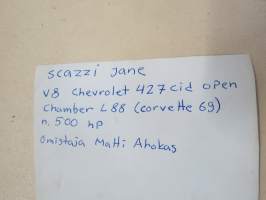 scazzi Jane
V8 Chevrolet 427 cid open
Chamber L88 (corvette 69)
n. 500 hp
Omistaja Matti Ahokas